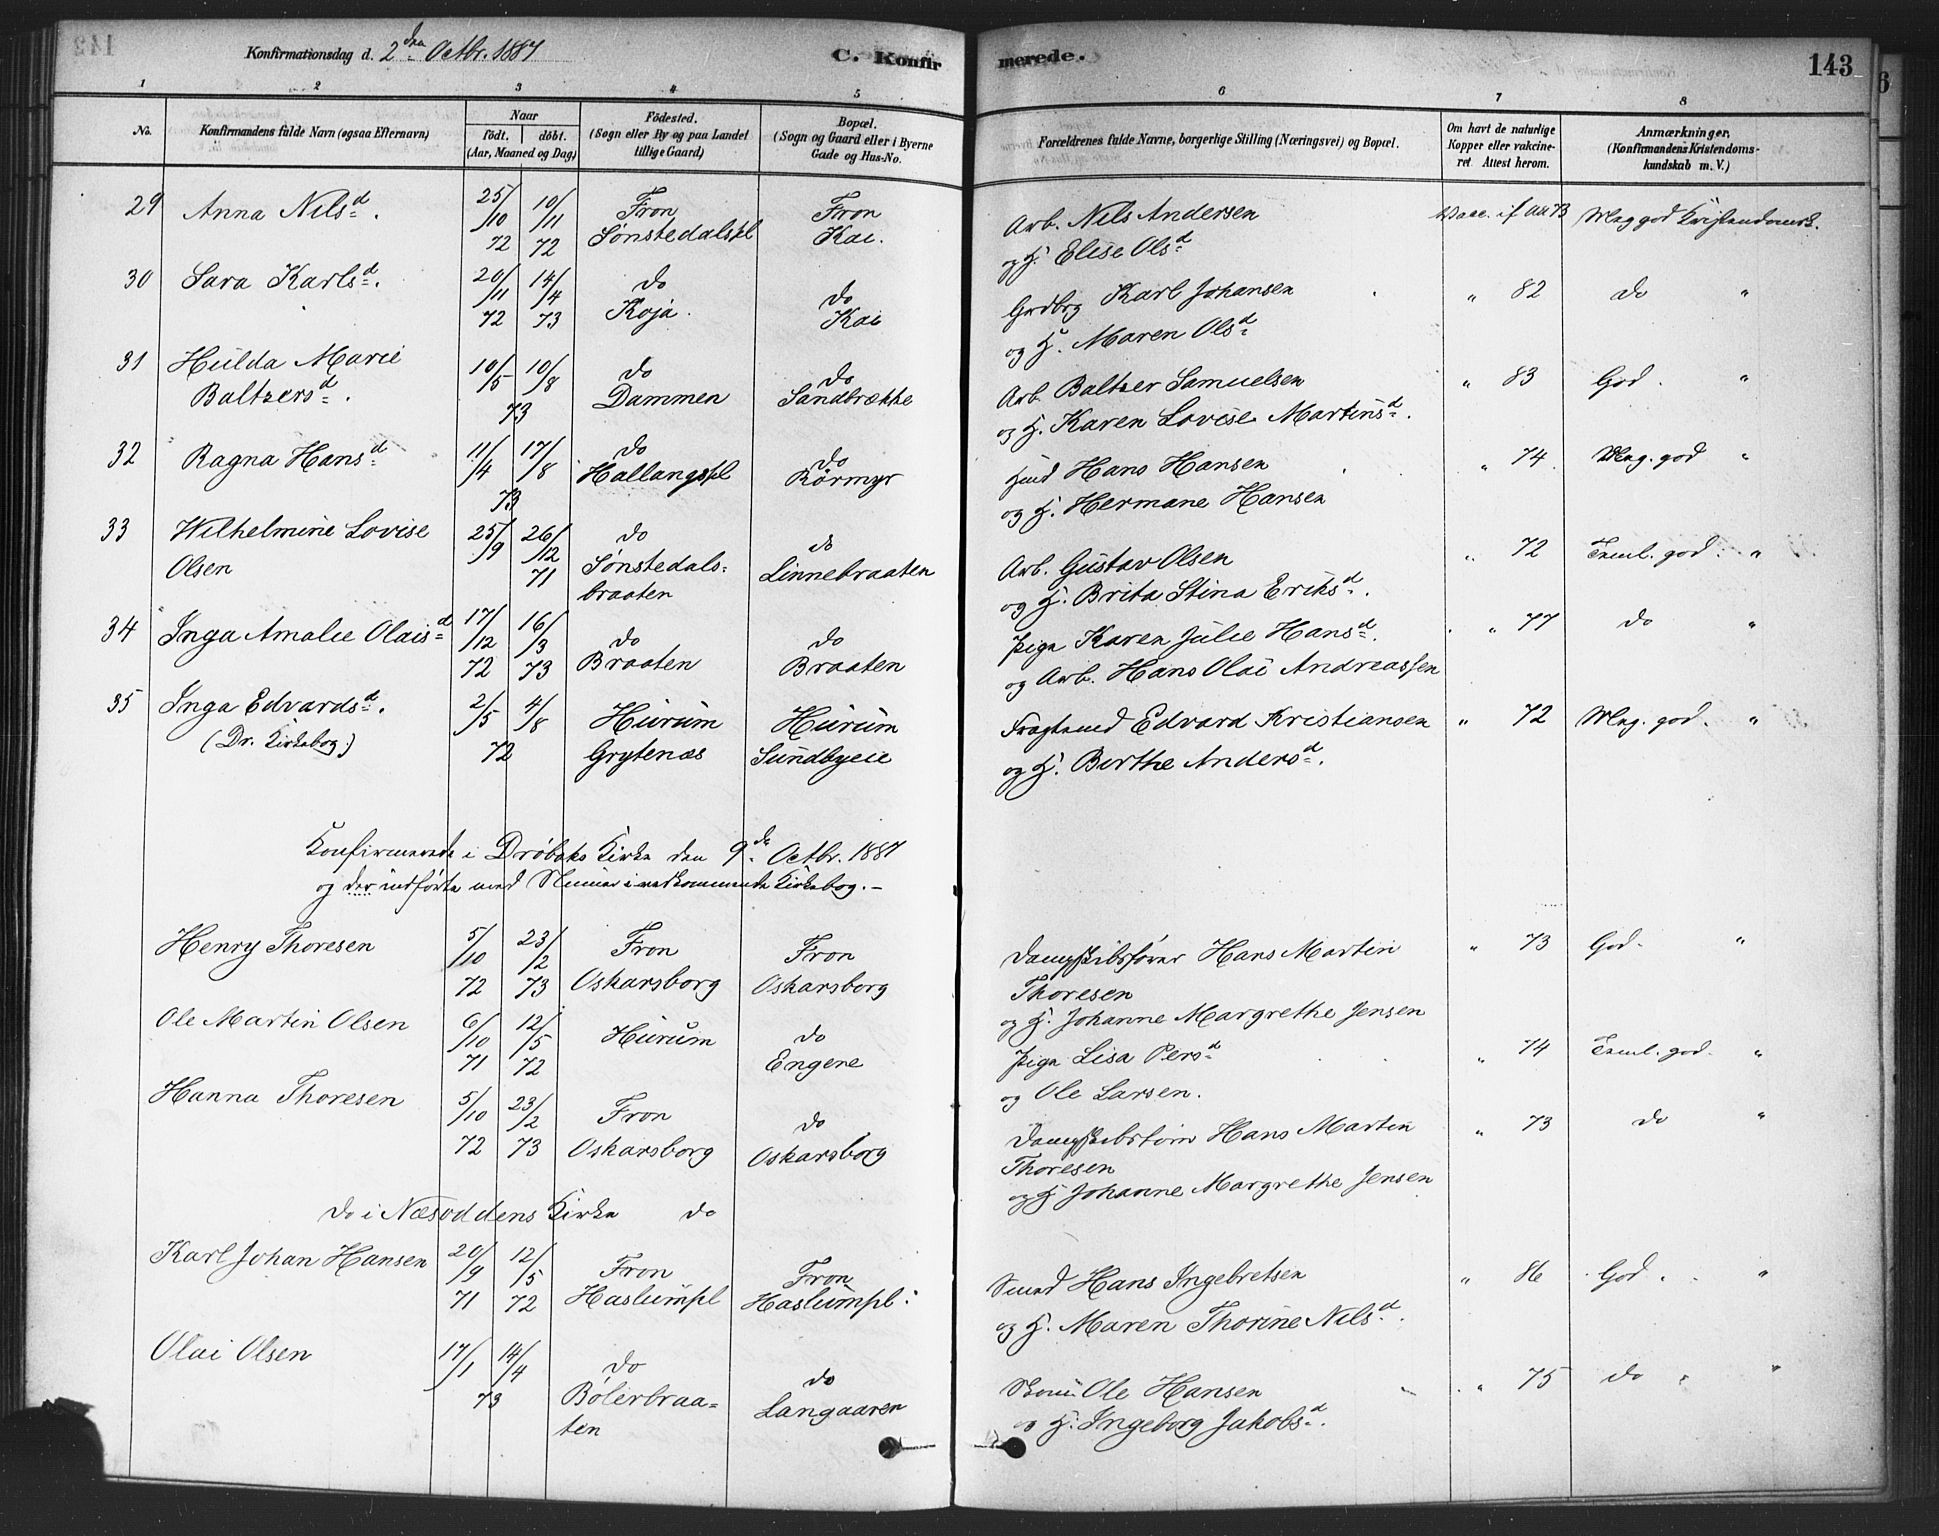 Konfirmationsdag d. 2den Octbr. 1887
C. Konfirmerede.
143
1 2 3 4 5 6 7 8
No.
Konfirmandens fulde Navn (ogsaa Efternavn)
Naar
födt. döbt.
(Aar, Maaned og Dag)
Födested.
(Sogn eller By og paa Landet
tillige Gaard)
Bopæl.
(Sogn og Gaard eller i Byerne
Gade og Hus-No.
Forældrenes fulde Navne, borgerlige Stilling (Næringsvei) og Bopæl.
Om havt de naturlige
Kopper eller vakcineret
Attest herom.
Anmærkninger.
(Konfirmandens Kristendomskundskab
m. V.)
29 Anna Nilsd. 25/10 72 10/11 72 Fron Sønstedalspl Fron Kae. Arb. Nils Andersen Vacc. if Att 73 Meg god Kristendomsk.
og H. Elise Olsd
30 Sara Karlsd. 20/11 72 14/4 73 do Koja. do Kae Grdbrg Karl Johansen " 82 do "
og H. Maren Olsd
31 Hulda Marie
Baltzersd. 10/5 10/8 73 do Dammen do Sandbrække Arb. Baltzer Samuelsen " 83 God. "
og H. Karen Lovise Martinsd.
32 Ragna Hansd 11/4 17/8 73 do Hallangspl do Rørmyr Hans Hansen " 74 Meg. god "
og H. Hermane Hansen
33 Wilhelmine Lovise
Olsen 25/9 26/12 71 do Sønstedalsbraaten do Linnebraaten Arb. Gustav Olsen " 72 Teml. god. "
og H. Brita Stina Eriksd.
34 Inga Amalie Olaisd 17/12 72 16/3 73 do Braaten do Braaten Pige Karen Julie Hansd. " 77 do "
og Arb. Hans Olai Andreassen
35 Inga Edvardsd.
(Dr. Kirkebog.) 2/5 4/8 72 Hurum Grytenæs Hurum Sundbyeie Fragtemd Edvard Kristiansen " 72 Meg. god. "
og H. Berthe Andersd.
Konfirmerede i Drøbaks Kirke den 9de Octbr. 1887
og der indførte med Numer i vedkommende Kirkebog. –
Henry Thoresen 5/10 72 23/2 73 Fron Oskarsborg Fron Oskarsborg Dampskibsfører Hans Martin " 73 God. "
Thoresen
og H. Johanne Margrethe Jensen
Ole Martin Olsen 6/10 71 12/5 72 Hurum do Engene Pige Lisa Persd " 74 Teml. god. "
og Ole Larsen.
Hanna Thoresen 5/10 72 23/2 73 Fron Oskarsborg do Oskarsborg Hans Martin " 73 do "
Thoresen
og H Johanne Margrethe Jensen
do i Næsoddens Kirke do
Karl Johan Hansen 20/9 71 12/5 72 Fron Haslumpl Fron Haslumpl: Smed Hans Ingebretsen " 86 God. "
og H. Maren Thorine Nilsd.
Olai Olsen 17/1 14/4 73 do Bølerbraaten do Langaaren Ole Hansen " 75 do "
og H. Ingeborg Jakobsd.